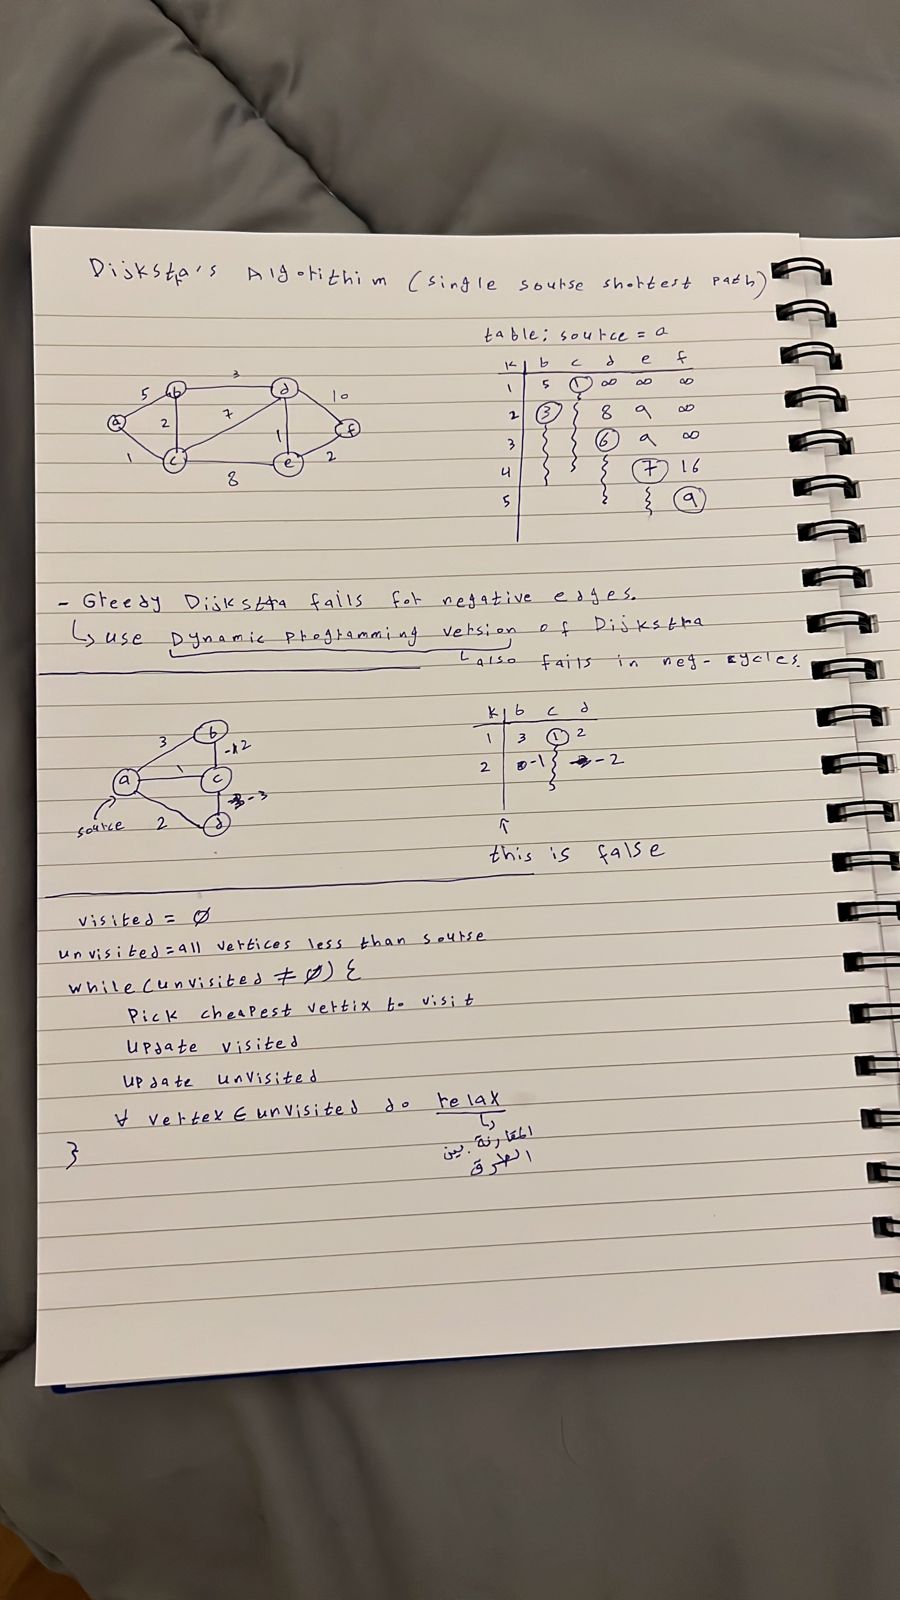 Dijkstra's Algorithim (single sourse shortest path)
table: source = a
K b c d e f
1 5 1 ∞ ∞ ∞
2 3 8 9 ∞
3 6 9 ∞
4 7 16
5 9
a 5 b 3 d 10 f
2 7 1
1 c 8 e 2
- Greedy Dijkstra fails for negative edges.
↳ use Dynamic programming version of Dijkstra
↳ also fails in neg- cycles.
K b c d
1 3 1 2
2 -1 -2
↑
this is false
3 b
-2
a 1 c
-3
source 2 d
visited = ∅
unvisited = all vertices less than sourse
while (unvisited ≠ ∅) {
Pick cheapest vertix to visit
update visited
update unvisited
∀ vertex ∈ unvisited do relax
المقارنة بين
الطرق
}